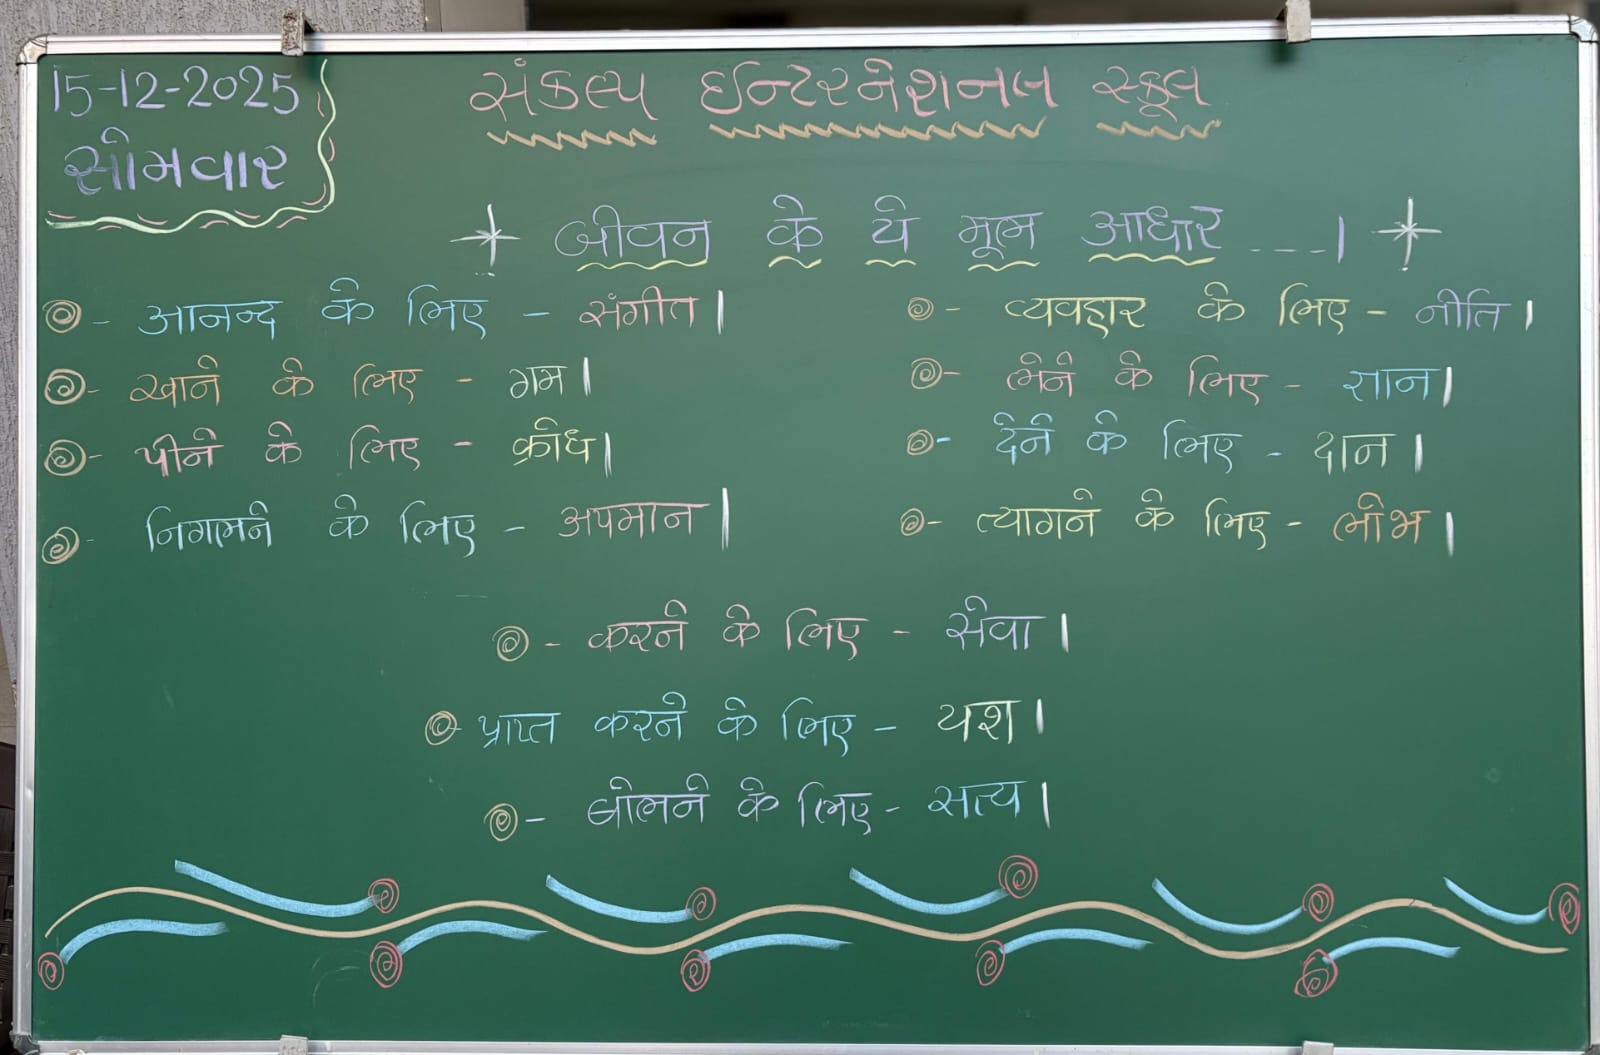 15-12-2025
सोमवार
संकल्प ईन्टरनेशनल स्कूल
जीवन के ये मूल आधार ----।
- आनन्द के लिए - संगीत।
- खाने के लिए - गम।
- पीने के लिए - क्रोध।
- निगलने के लिए - अपमान।
- व्यवहार के लिए - नीति।
- लेने के लिए - ज्ञान।
- देने के लिए - दान।
- त्यागने के लिए - लोभ।
- करने के लिए - सेवा।
- प्राप्त करने के लिए - यश।
- बोलने के लिए - सत्य।